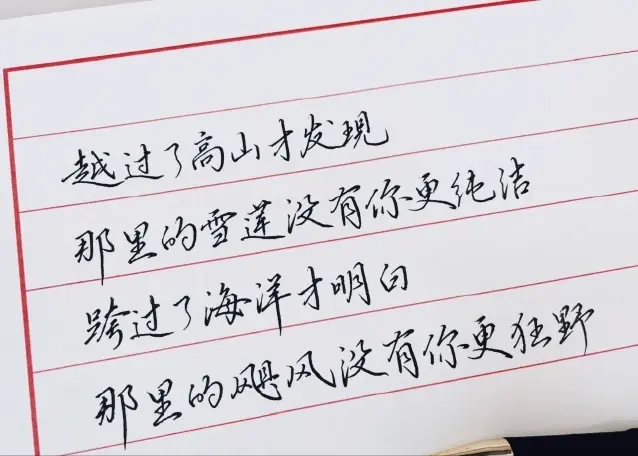 越过了高山才发现
那里的雪莲没有你更纯洁
跨过了海洋才明白
那里的飓风没有你更狂野